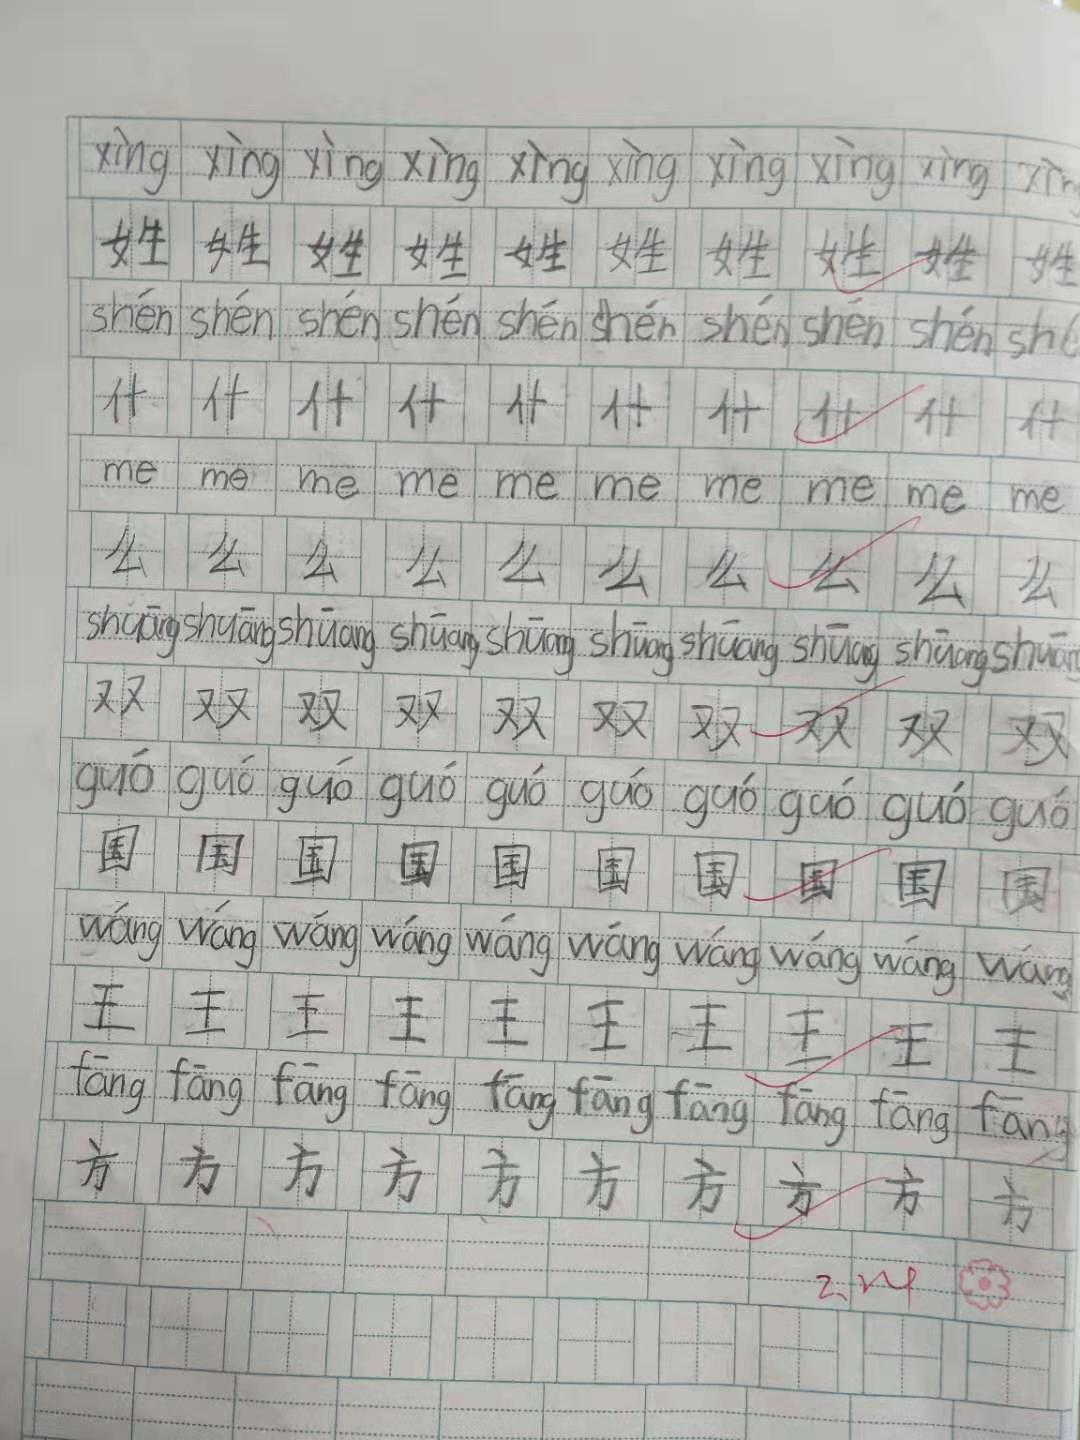 xìng xìng xìng xìng xìng xìng xìng xìng xìng xìng
姓 姓 姓 姓 姓 姓 姓 姓 姓 姓
shén shén shén shén shén shén shén shén shén shé
什 什 什 什 什 什 什 什 什 什
me me me me me me me me me me
么 么 么 么 么 么 么 么 么 么
shuāng shuāng shūang shūang shūang shūang shūang shūang shūang shuāng
双 双 双 双 双 双 双 双 双 双
guó guó guó guó guó guó guó guó guó guó
国 国 国 国 国 国 国 国 国 国
wáng wáng wáng wáng wáng wáng wáng wáng wáng wáng
王 王 王 王 王 王 王 王 王 王
fāng fāng fāng fāng fāng fāng fāng fāng fāng fāng
方 方 方 方 方 方 方 方 方 方